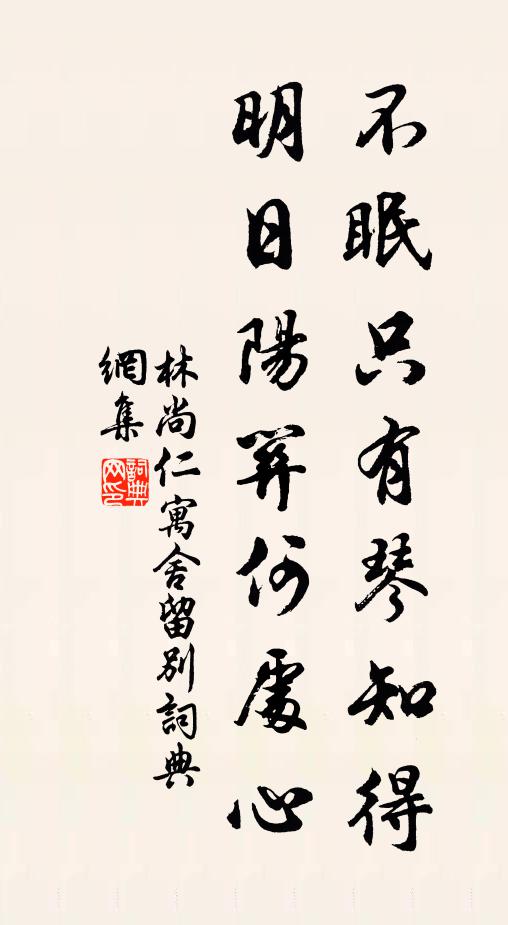 不眠只有琴知得
明日陽關何處心
林尚仁寓舍留別詞典
網集
詞典網印